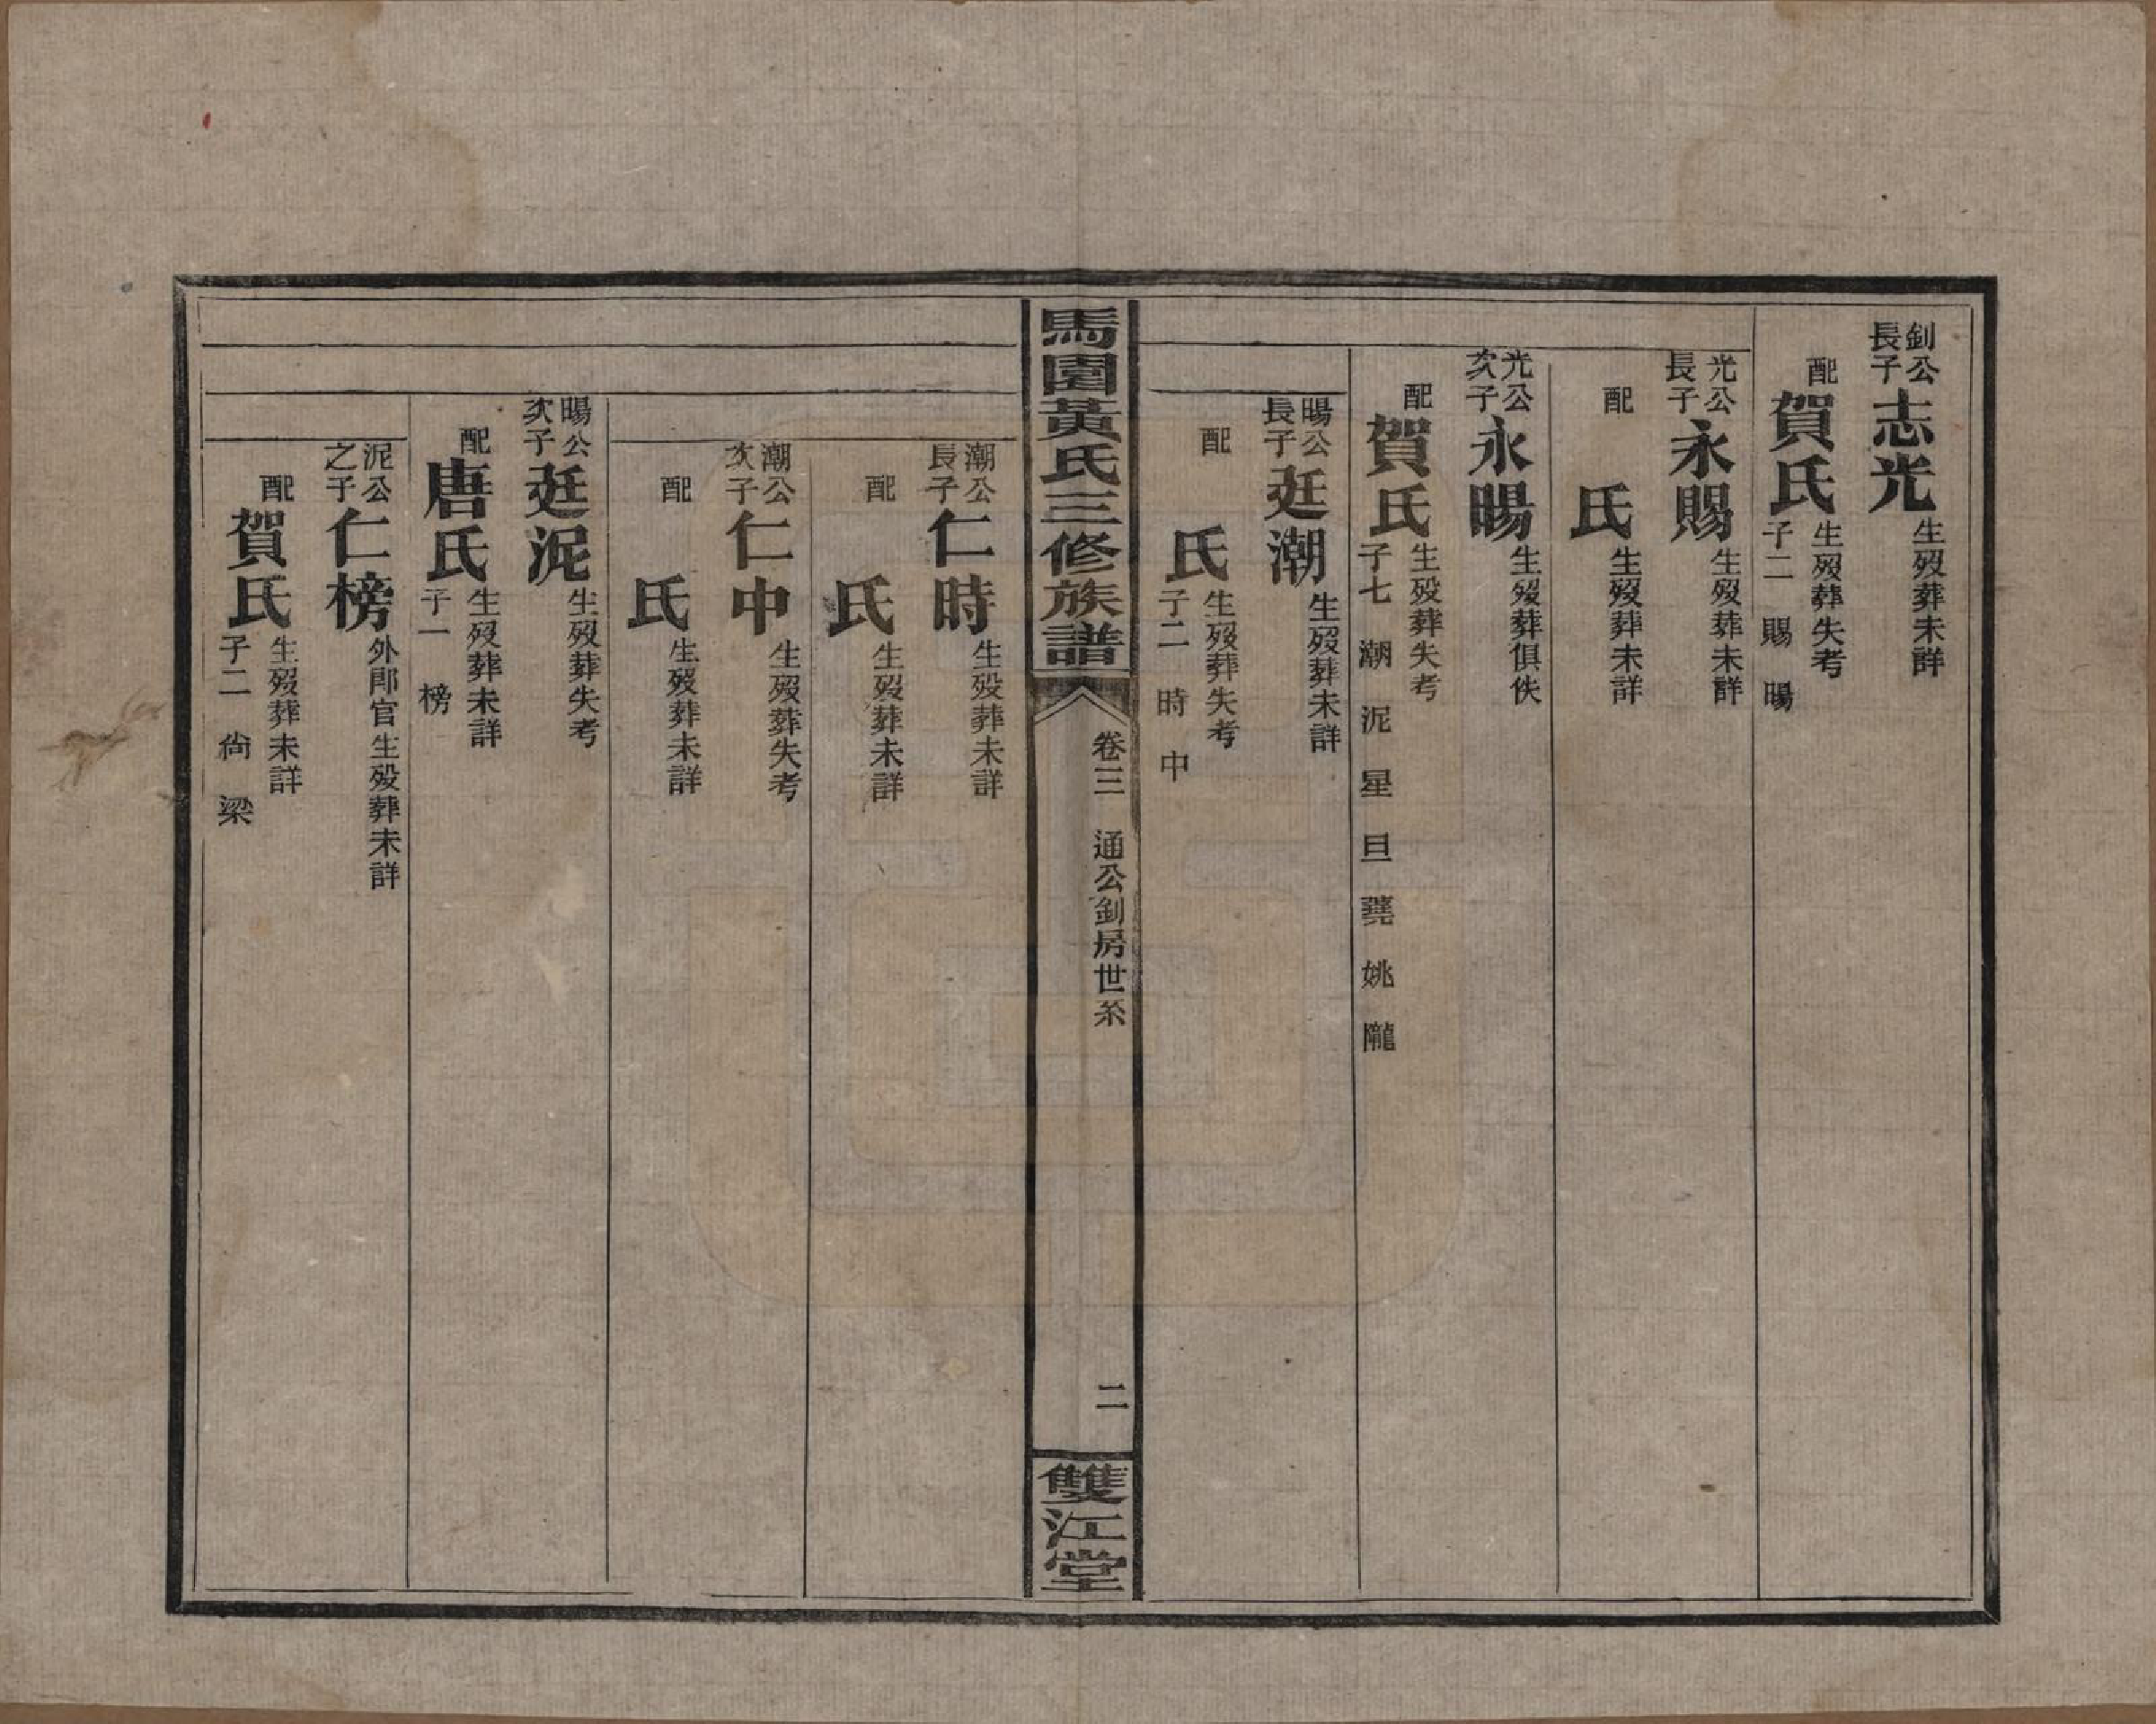 釗公長子志光生歿葬未詳
配賀氏生歿葬失考子二 賜 暘
光公長子永賜生歿葬未詳
配 氏生歿葬未詳
光公次子永暘生歿葬俱佚
配賀氏生歿葬失考子七 潮 泥 星 旦 蕘 姚 隴
暘公長子廷潮生歿葬未詳
配 氏生歿葬失考子二 時 中
馬園黃氏三修族譜
卷三 通公釗房世系
二
雙江堂
潮公長子仁時生歿葬未詳
配 氏生歿葬未詳
潮公次子仁中生歿葬失考
配 氏生歿葬未詳
暘公次子廷泥生歿葬失考
配唐氏生歿葬未詳子一 榜
泥公之子仁榜外郎官生歿葬未詳
配賀氏生歿葬未詳子二 尙 梁